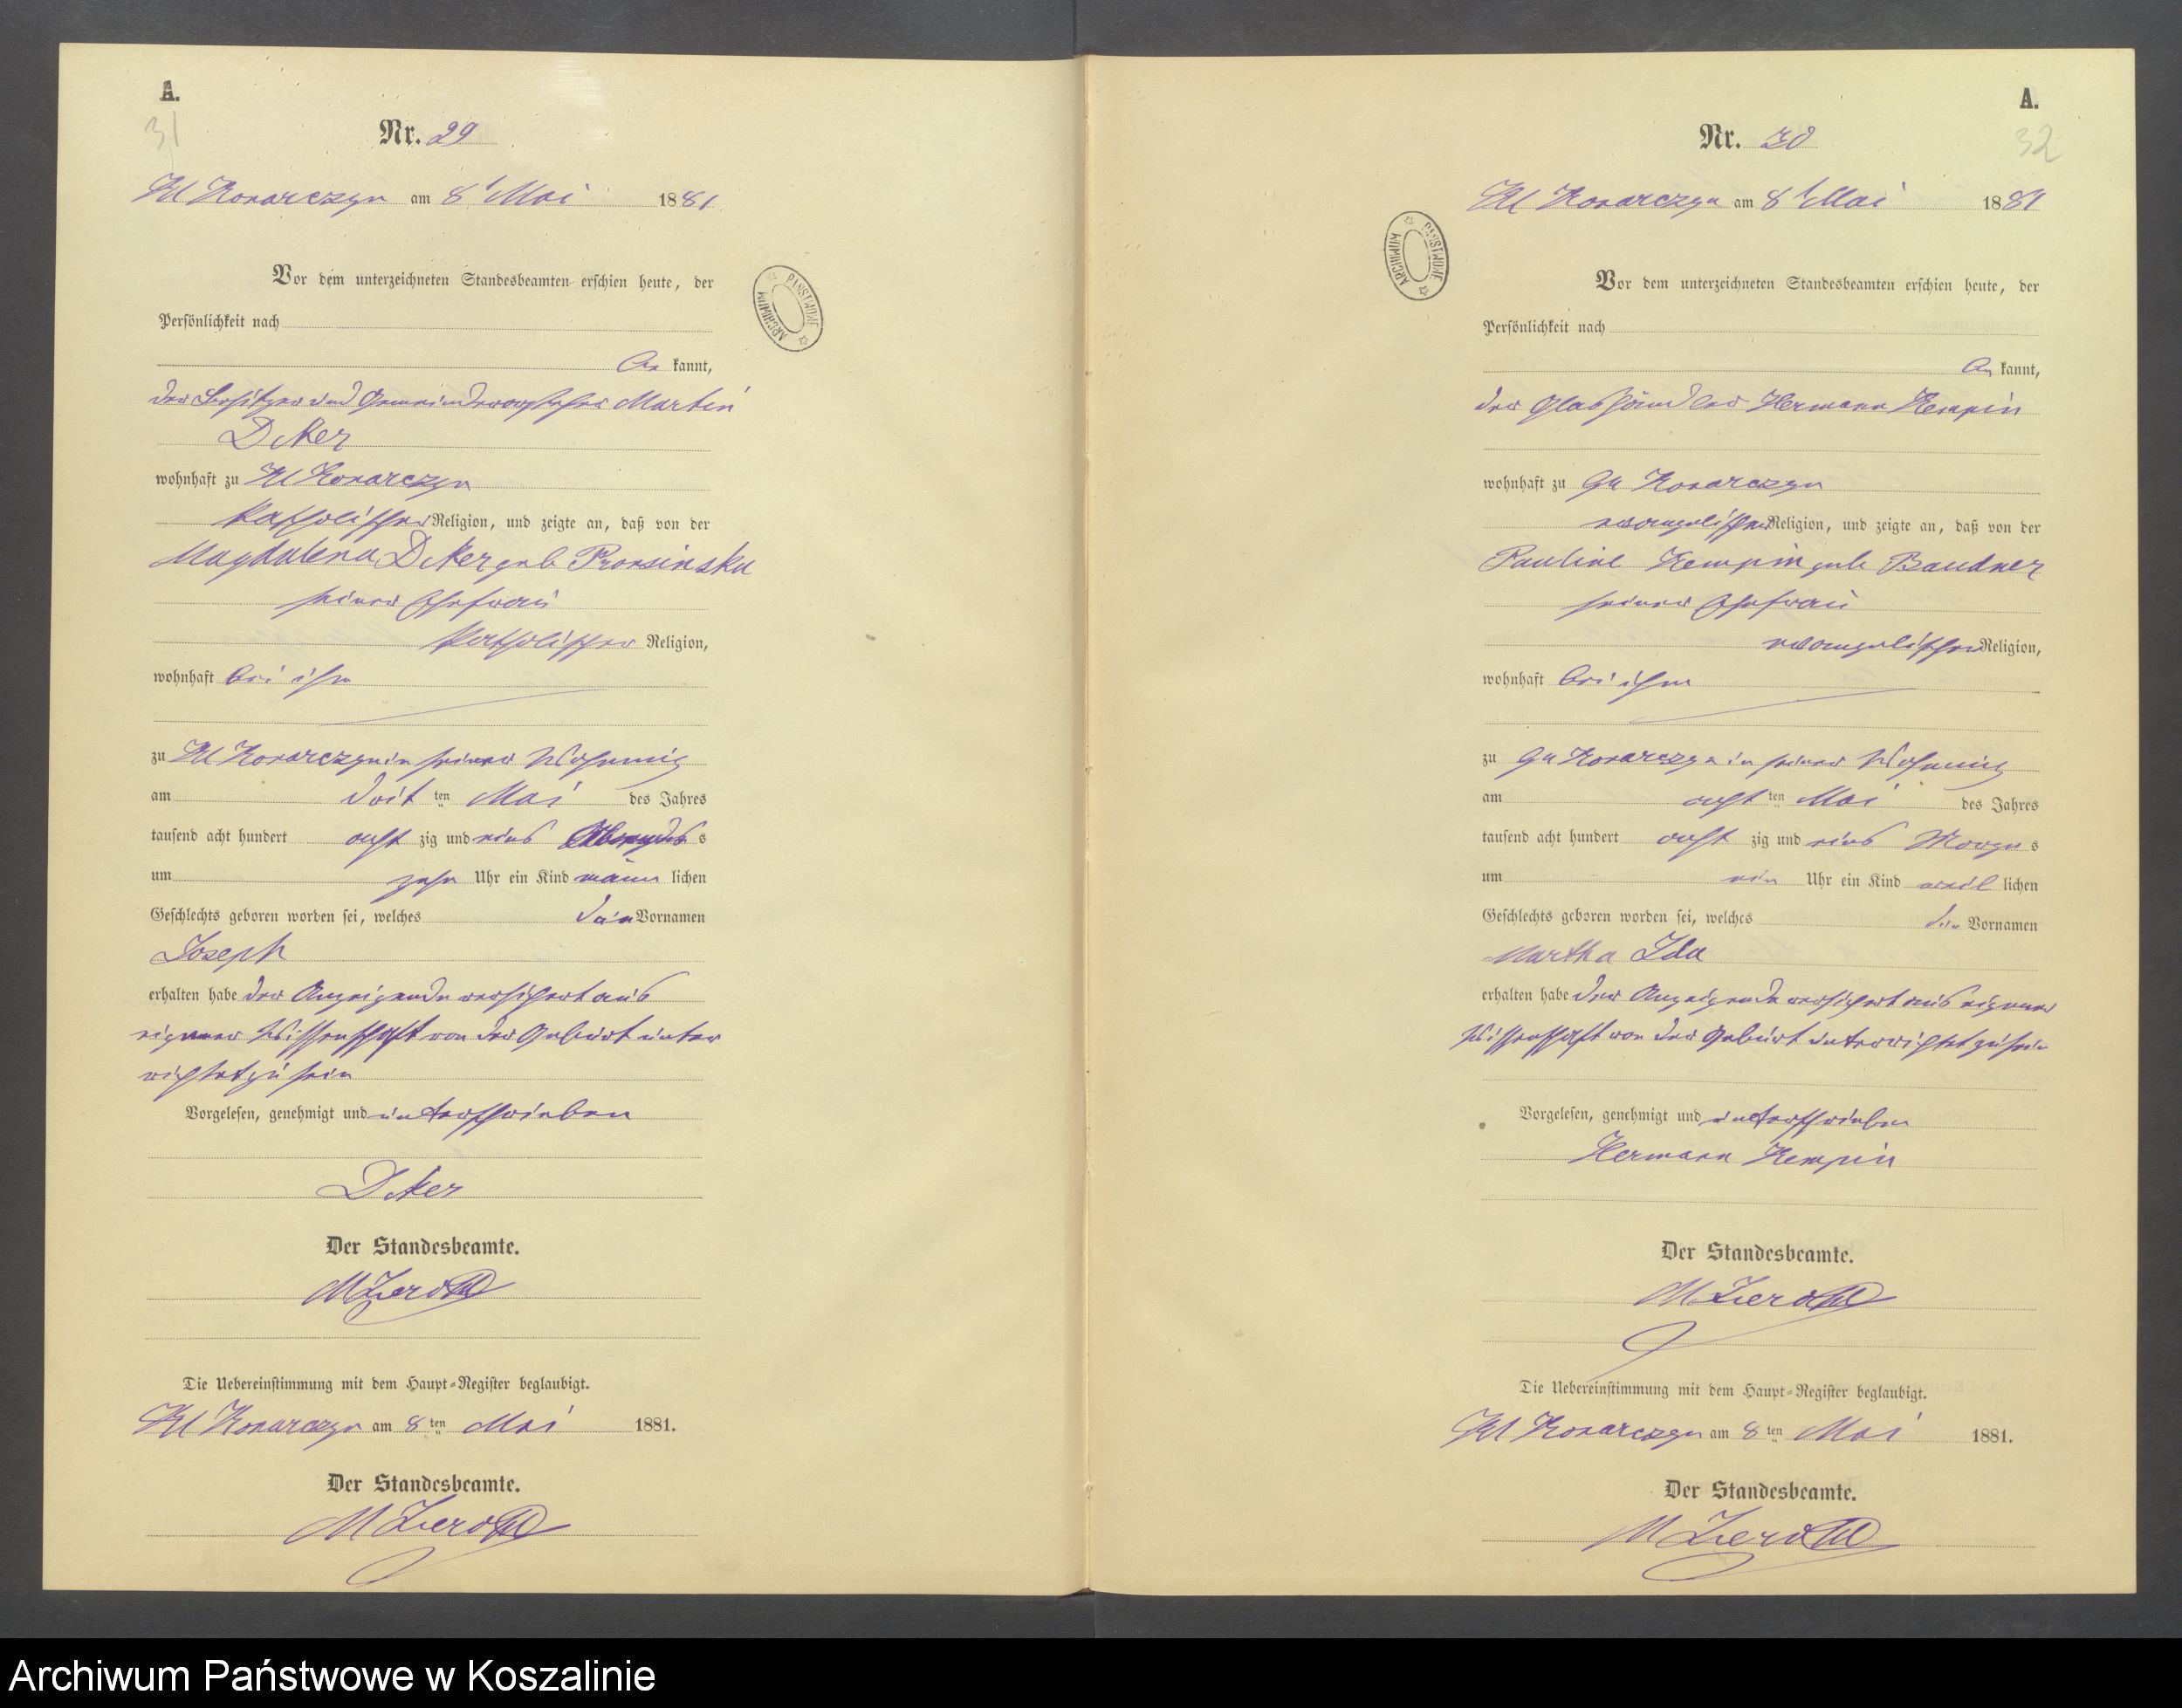 A.
31
Nr. 29
Kl Konarczyn am 8t Mai 1881
Vor dem unterzeichneten Standesbeamten erschien heute, der
Persönlichkeit nach
be kannt,
der Besitzer und Gemeindevorsteher Martin
wohnhaft zu Kl Konarczyn
katholischer Religion, und zeigte an, daß von der
Magdalena geb
seiner Ehefrau
katholischer Religion,
wohnhaft bei ihm
zu Kl Konarczyn in seiner Wohnung
am dritten Mai des Jahres
tausend acht hundert acht zig und eins Abends
um zehn Uhr ein Kind männ lichen
Geschlechts geboren worden sei, welches den Vornamen
Joseph
erhalten habe der Anzeigende versichert aus
eigener Wissenschaft von der Geburt unter
richtet zu sein
Vorgelesen, genehmigt und unterschrieben
Der Standesbeamte.
Die Uebereinstimmung mit dem Haupt-Register beglaubigt.
Kl Konarczyn am 8ten Mai 1881.
Der Standesbeamte.
A.
32
Nr. 30
Kl Konarczyn am 8t Mai 1881
Vor dem unterzeichneten Standesbeamten erschien heute, der
Persönlichkeit nach
be kannt,
der Glashändler Hermann Kempin
wohnhaft zu Gr Konarczyn
evangelischer Religion, und zeigte an, daß von der
Pauline Kempin geb Baudner
seiner Ehefrau
evangelischer Religion,
wohnhaft bei ihm
zu Gr Konarczyn in seiner Wohnung
am achten Mai des Jahres
tausend acht hundert acht zig und eins Morgens
um ein Uhr ein Kind weib lichen
Geschlechts geboren worden sei, welches den Vornamen
Martha Ida
erhalten habe der Anzeigende versichert aus eigener
Wissenschaft von der Geburt unterrichtet zu sein
Vorgelesen, genehmigt und unterschrieben
Hermann Kempin
Der Standesbeamte.
Die Uebereinstimmung mit dem Haupt-Register beglaubigt.
Kl Konarczyn am 8ten Mai 1881.
Der Standesbeamte.
ARCHIWUM PAŃSTWOWE
ARCHIWUM PAŃSTWOWE
Archiwum Państwowe w Koszalinie